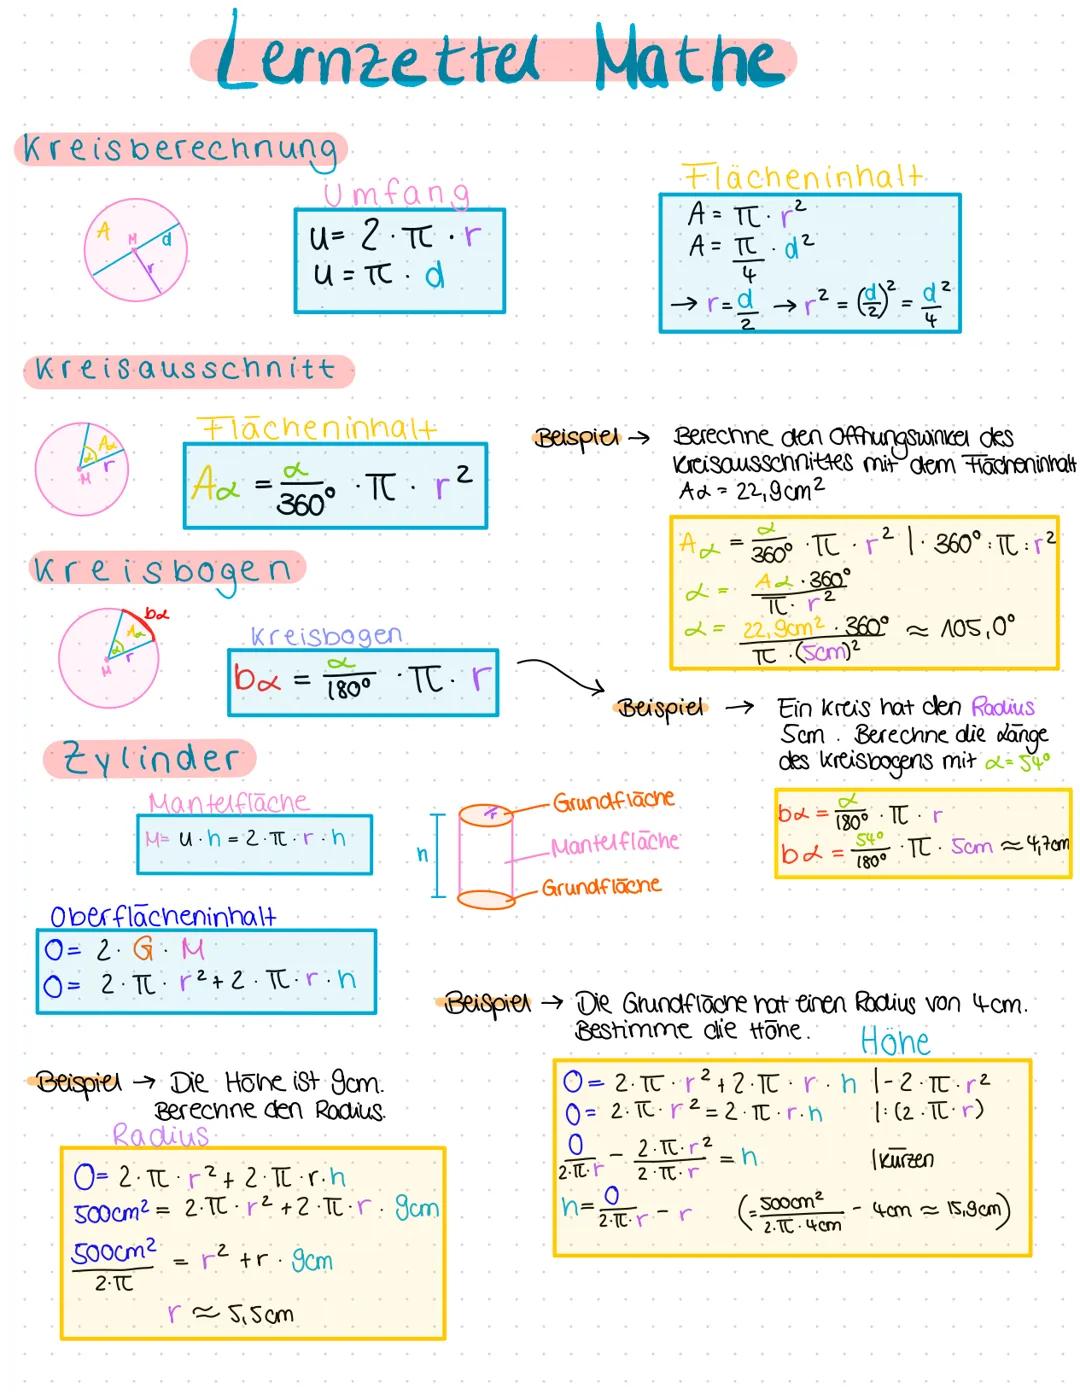 Lernzettel Mathe
Kreisberechnung
Umfang
u= 2·π·r
u=π·d
Flächeninhalt
A=π·r²
A=π/4·d²
→ r=d/2 → r²=(d/2)²=d²/4
A
M
d
r
Kreisausschnitt
Flächeninhalt
Aα = α/360° ·π· r²
Aα
α
r
M
Beispiel → Berechne den Öffnungswinkel des
Kreisausschnittes mit dem Flächeninhalt
Aα = 22,9cm²
Aα = α/360° ·π·r² |· 360° :π: r²
α = Aα·360°/π·r²
α = 22,9cm²·360°/π·(5cm)² ≈ 105,0°
Kreisbogen
bα
Aα
α
r
M
Kreisbogen
bα = α/180° ·π· r
Beispiel → Ein Kreis hat den Radius
5cm. Berechne die Länge
des Kreisbogens mit α=54°
bα = α/180° ·π· r
bα = 54°/180° ·π· 5cm ≈ 4,7cm
Zylinder
Mantelfläche
M= u·h = 2·π·r·h
r
h
Grundfläche
Mantelfläche
Grundfläche
Oberflächeninhalt
O= 2· G· M
O= 2·π· r²+2·π·r·h
Beispiel → Die Grundfläche hat einen Radius von 4cm.
Bestimme die Höhe.
Höhe
O= 2·π·r²+2·π·r·h |-2·π·r²
O= 2·π·r²=2·π·r·h |:(2·π·r)
O/2·π·r - 2·π·r²/2·π·r = h |kürzen
h= O/2·π·r - r (= 500cm²/2·π·4cm - 4cm ≈ 15,9cm)
Beispiel → Die Höhe ist 9cm.
Berechne den Radius.
Radius
O= 2·π·r²+2·π·r·h
500cm² = 2·π·r²+2·π·r·9cm
500cm²/2·π = r²+r·9cm
r ≈ 5,5cm